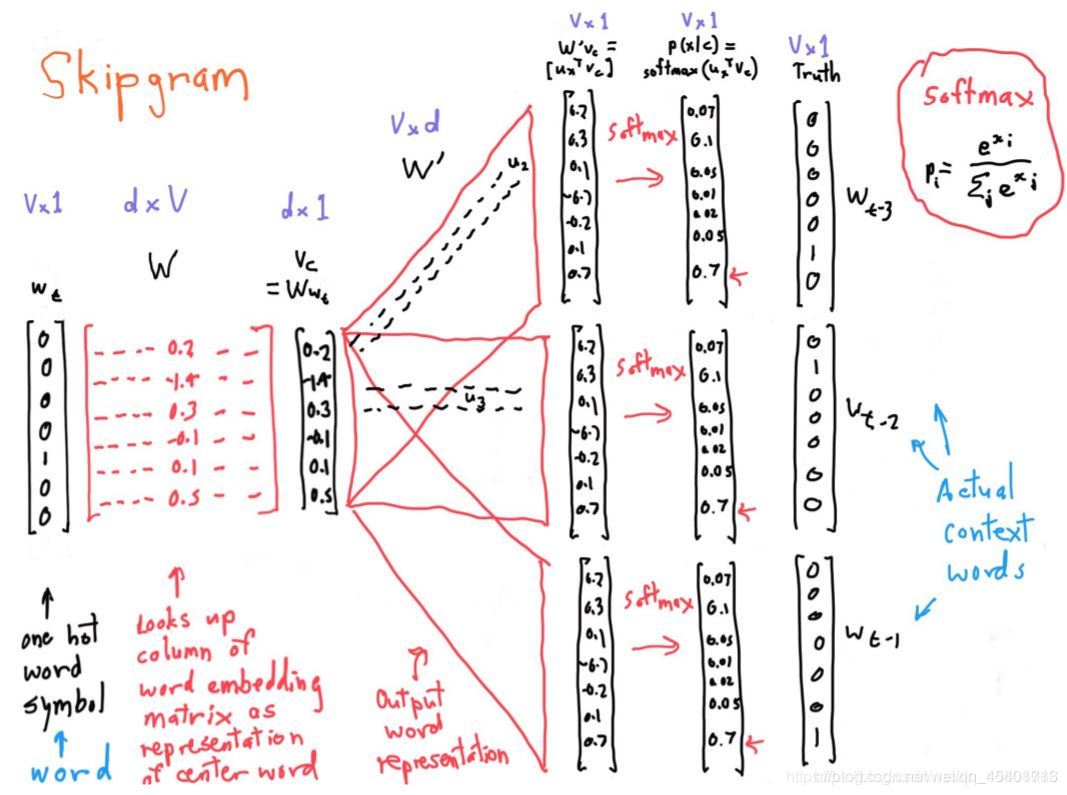 Skipgram
V×1
w_t
0
0
0
0
1
0
0
one hot
word
symbol
word
d×V
W
0.2
-1.4
0.3
-0.1
0.1
0.5
Looks up
column of
word embedding
matrix as
representation
of center word
d×1
V_c
= Ww_t
0.2
-1.4
0.3
-0.1
0.1
0.5
V×d
W'
u_2
u_3
Output
word
representation
V×1
W'v_c =
[u_x^T v_c]
6.7
6.3
0.1
-6.7
-0.2
0.1
0.7
softmax
V×1
p(x|c) =
softmax(u_x^T v_c)
0.07
0.1
0.05
0.01
0.02
0.05
0.7
V×1
Truth
0
0
0
0
0
1
0
W_t-3
6.7
6.3
0.1
-6.7
-0.2
0.1
0.7
softmax
0.07
0.1
0.05
0.01
0.02
0.05
0.7
0
1
0
0
0
0
0
W_t-2
6.7
6.3
0.1
-6.7
-0.2
0.1
0.7
softmax
0.07
0.1
0.05
0.01
0.02
0.05
0.7
0
0
0
0
0
0
1
W_t-1
softmax
p_i = e^x_i / Σ_j e^x_j
Actual
context
words